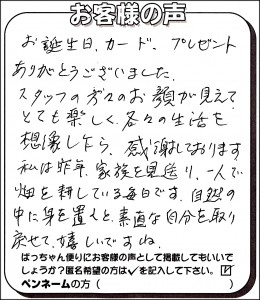 お客様の声
お誕生日、カード、プレゼント
ありがとうございました。
スタッフの方々のお顔が見えて
とても楽しく、各々の生活を
想像したり、感謝しております
私は昨年、家族を見送り、一人で
畑を耕している毎日です。自然の
中に身を置くと、素直な自分を取り
戻せて、嬉しいですね。
ばっちゃん便りにお客様の声として掲載してもいいで
しょうか?匿名希望の方は✓を記入して下さい。☑
ペンネームの方( )